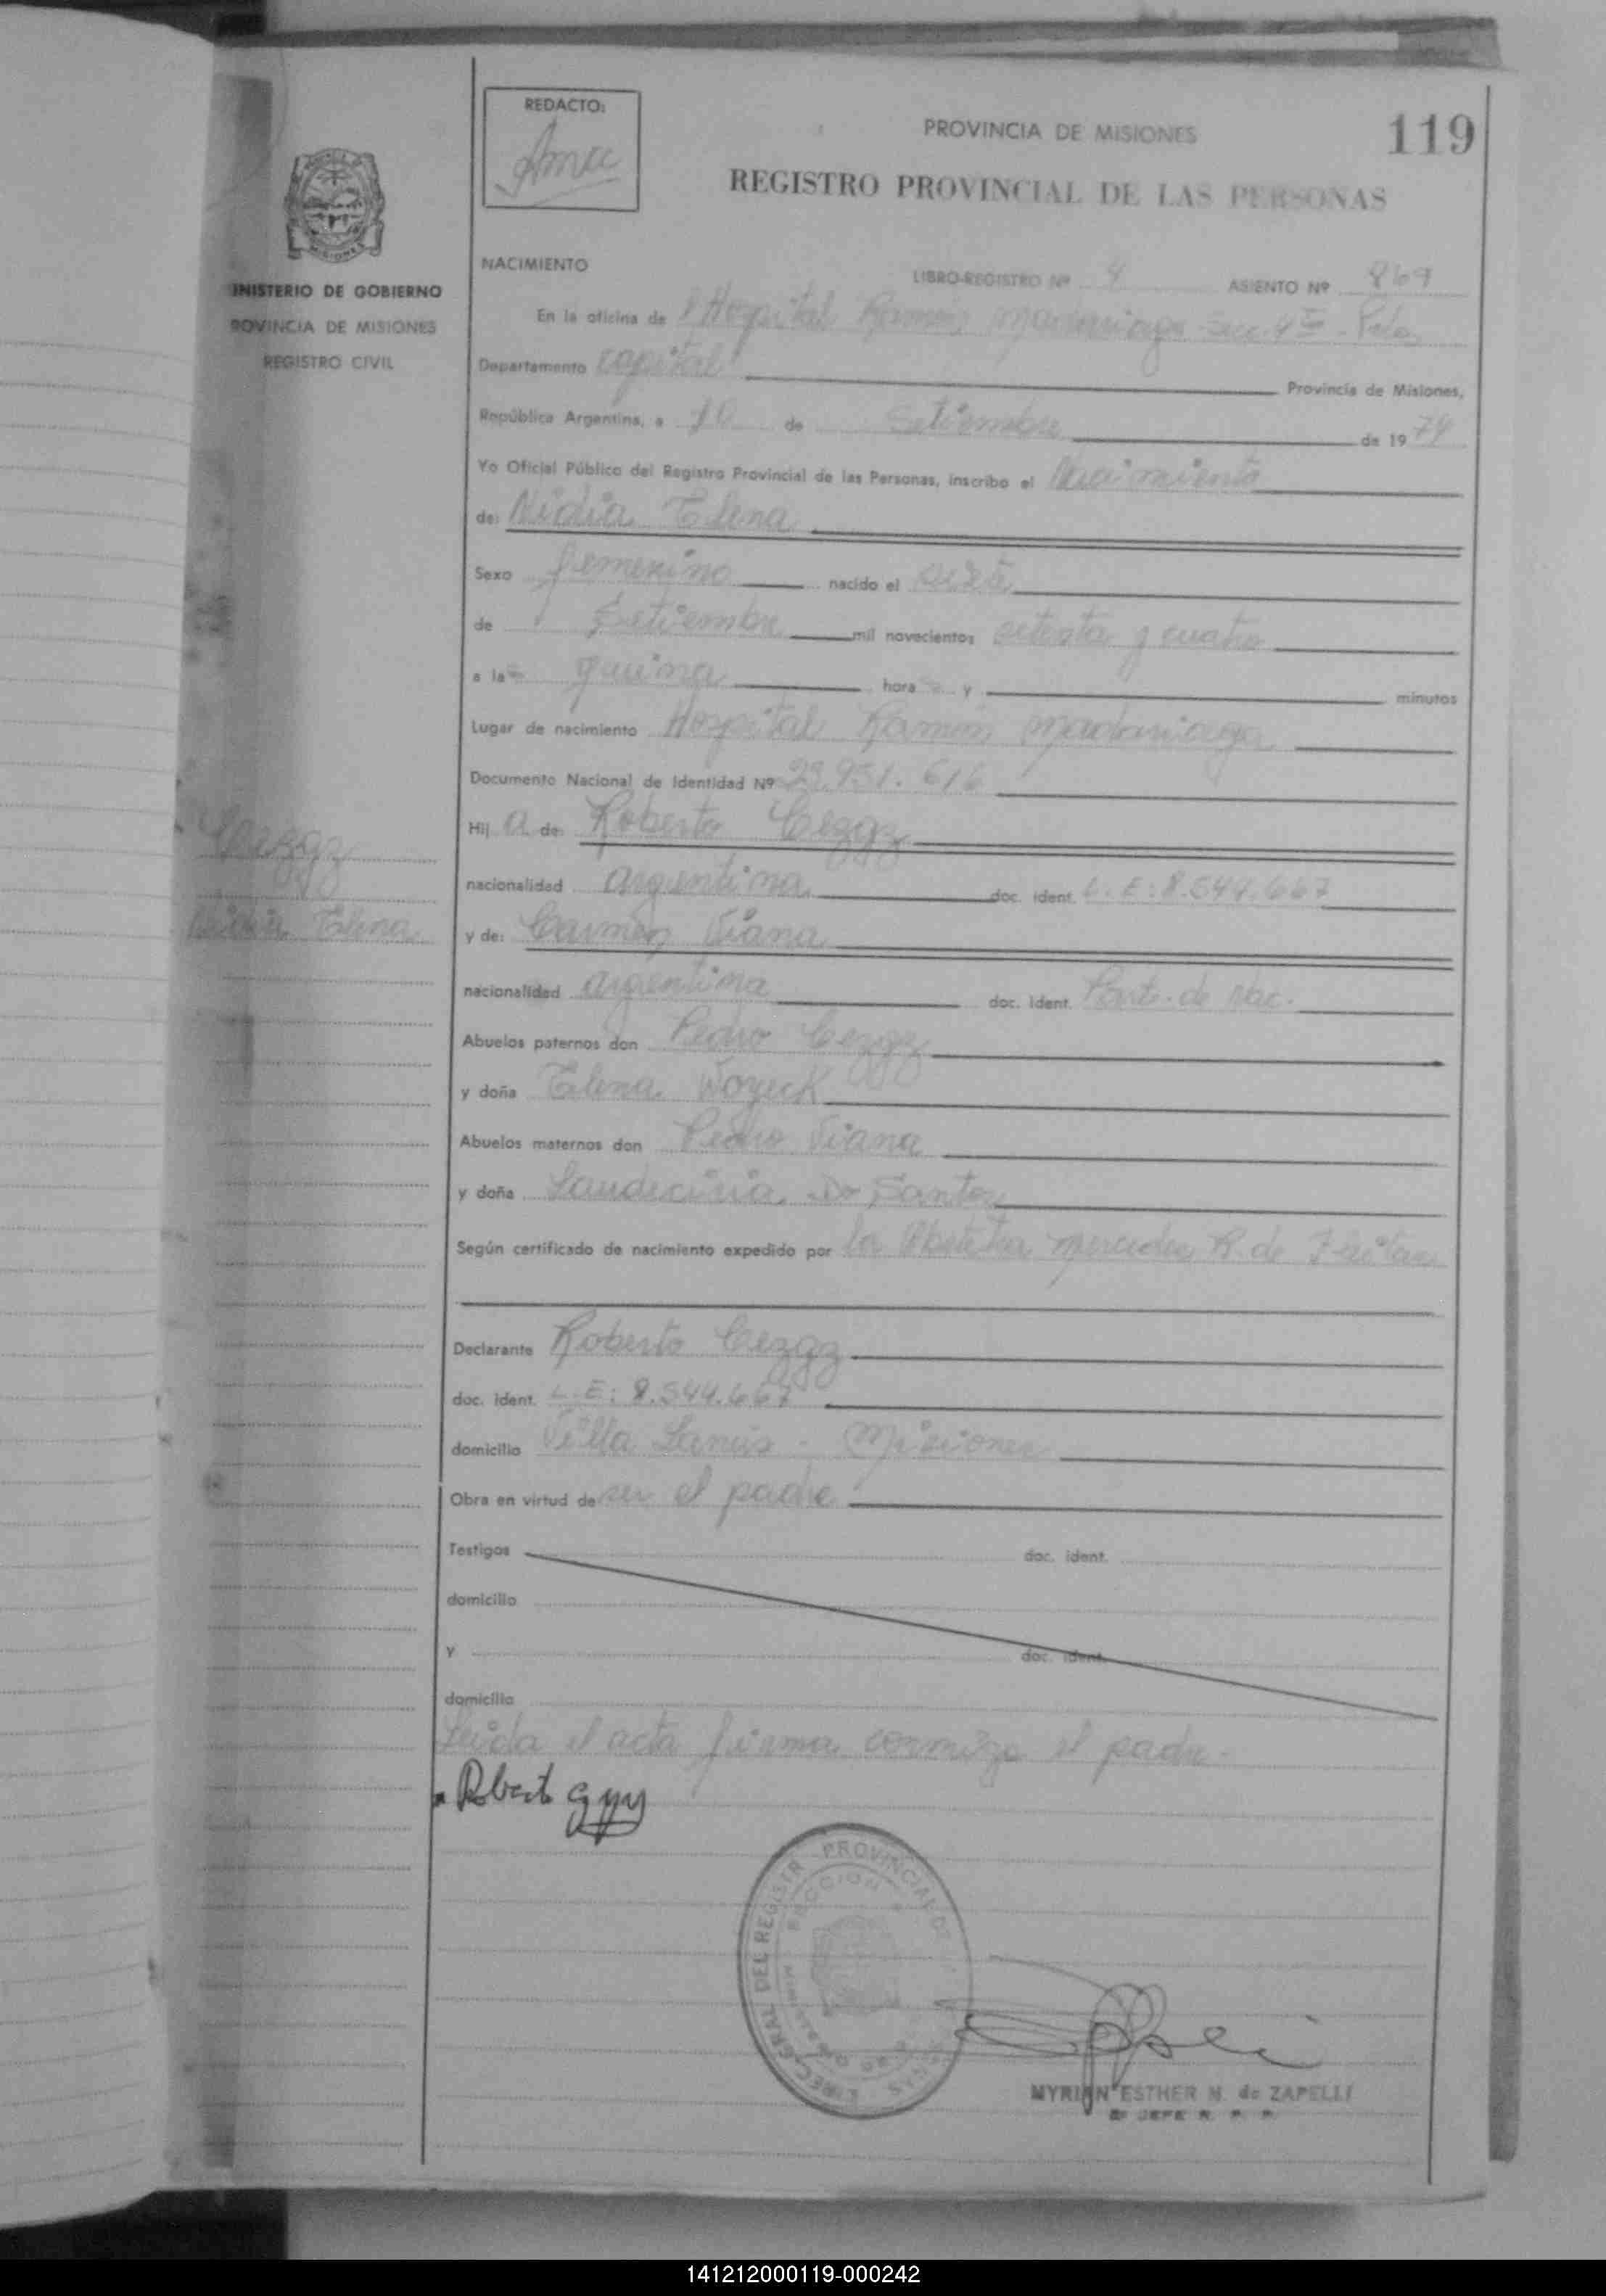 REDACTO:
PROVINCIA DE MISIONES
119
REGISTRO PROVINCIAL DE LAS PERSONAS
MISIONES
INISTERIO DE GOBIERNO
ROVINCIA DE MISIONES
REGISTRO CIVIL
NACIMIENTO
LIBRO-REGISTRO Nº 4 ASIENTO Nº 869
En la oficina de Hospital Ramón Madariaga Sec. 4ª Pdas
Departamento capital Provincia de Misiones,
República Argentina, a 10 de Setiembre de 1974
Yo Oficial Público del Registro Provincial de las Personas, inscribo el Nacimiento
de: Nidia Elena
Sexo femenino nacido el
de Setiembre mil novecientos setenta y cuatro
a las hora y minutos
Lugar de nacimiento Hospital Ramón Madariaga
Documento Nacional de Identidad Nº 23.951.616
Hij a de: Roberto Cezgz
nacionalidad argentina doc. ident. L. E: 8.544.667
Cezgz
Nidia Elena
y de: Carmen Viana
nacionalidad argentina doc. ident. Parte de Nac.
Abuelos paternos don Pedro Cezgz
y doña Elena Woyeck
Abuelos maternos don Pedro Viana
y doña Do Santos
Según certificado de nacimiento expedido por la Obstetra Mercedes R. de Freitas
Declarante Roberto Cezgz
doc. ident. L. E: 8.544.667
domicilio Villa Lanús - Misiones
Obra en virtud de ser el padre
Testigos doc. ident.
domicilio
y doc. ident.
domicilio
Leida el acta firma conmigo el padre.
Robert
PROVINCIAL DE
DEL REGISTR
MYRIAN ESTHER N. de ZAPELLI
JEFE R. P. P.
141212000119-000242